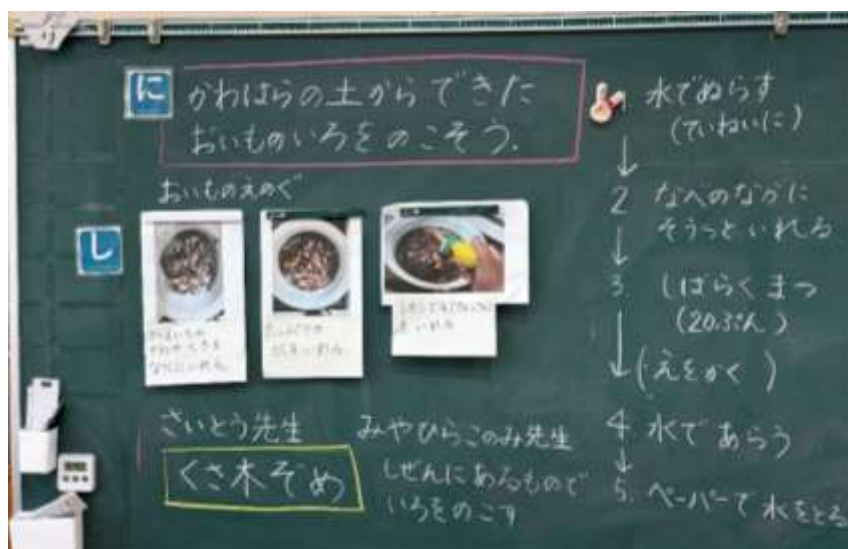 に
かわはらの土からできた
おいものいろをのこそう.
おいものえのぐ
し
をいれる
さいとう先生
くさ木ぞめ
みやひらこのみ先生
しぜんにあるもので
いろをのこす
水でぬらす
(ていねいに)
↓
2 なべのなかに
そうっといれる
↓
3 しばらくまつ
(20ぷん)
↓(えをかく)
4 水であらう
↓
5. ペーパーで水をとる